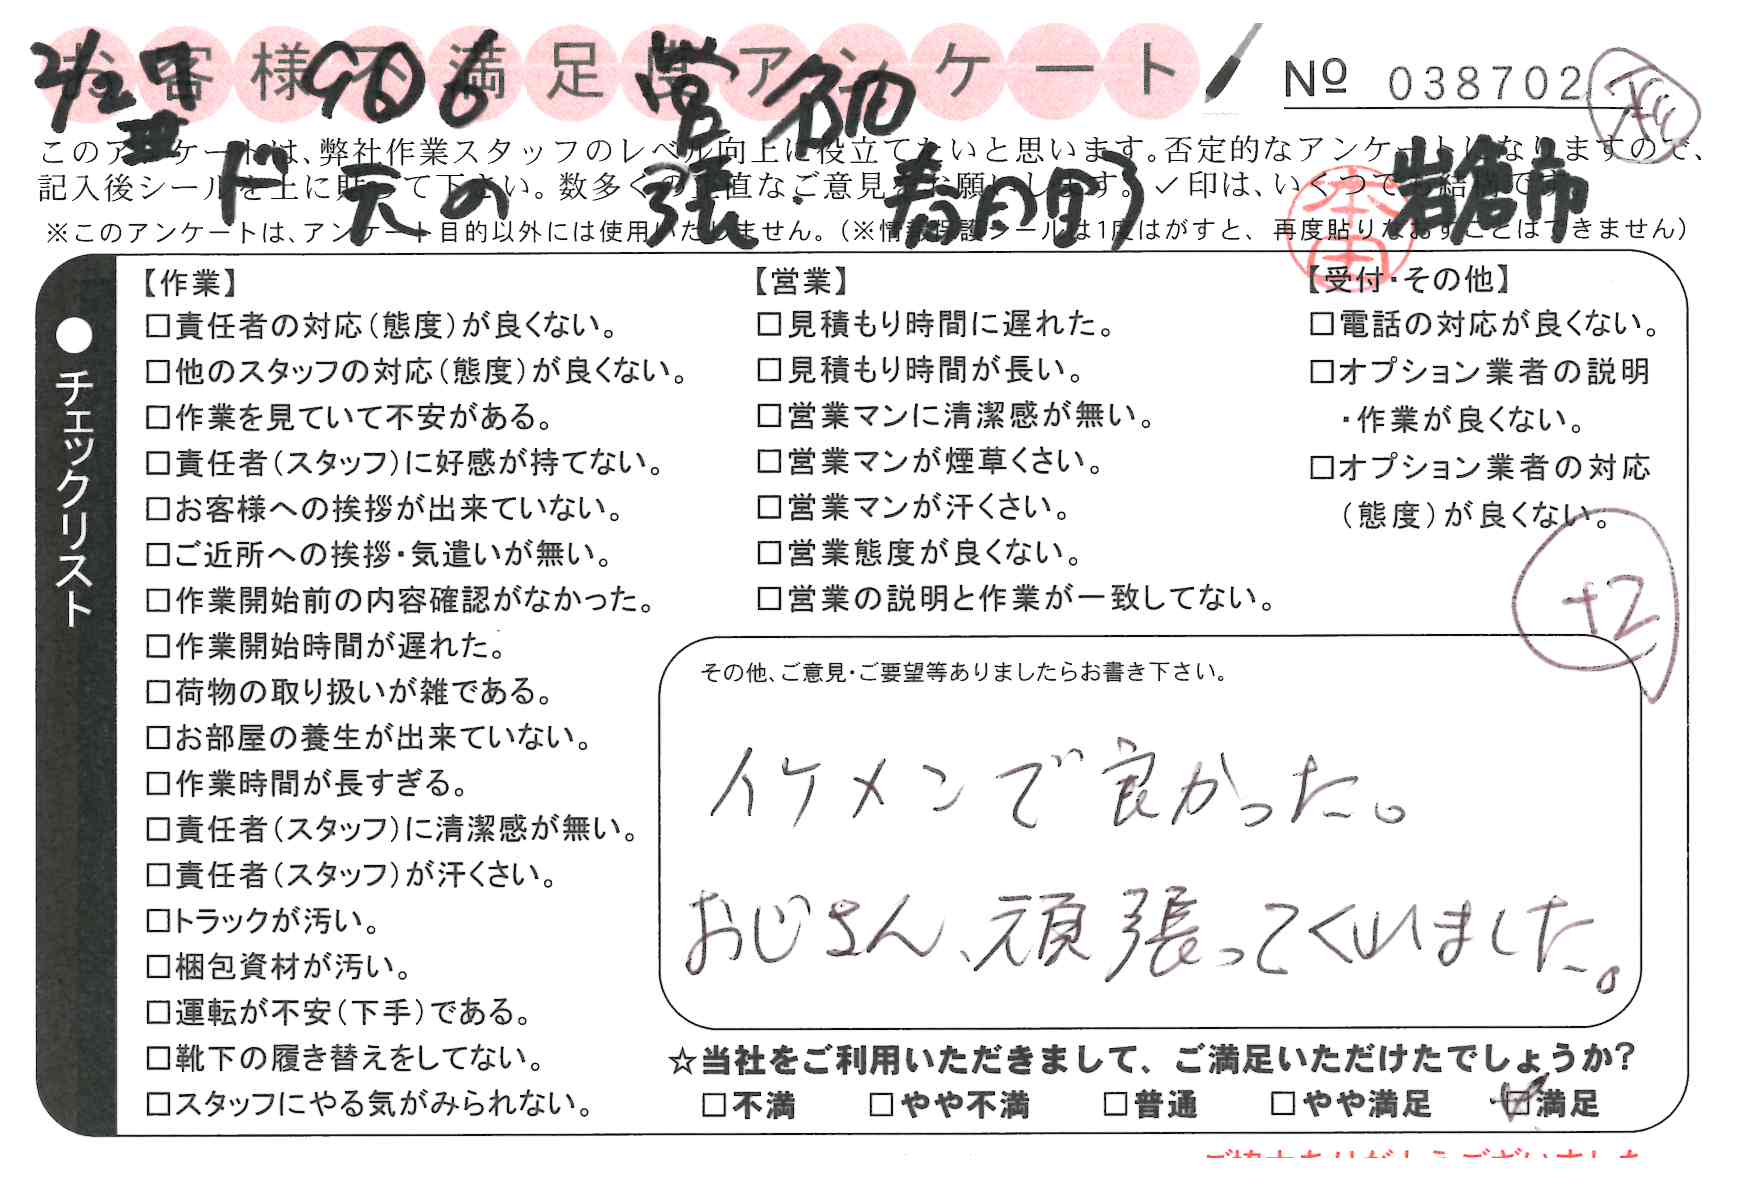 お客様不満足度アンケート
№ 038702
このアンケートは、弊社作業スタッフのレベル向上に役立てたいと思います。否定的なアンケートになりますので、
記入後シールを上に貼って下さい。数多くの正直なご意見をお願いします。✓印は、いくつでも結構です。
※このアンケートは、アンケート目的以外には使用いたしません。(※情報保護シールは1度はがすと、再度貼りなおすことはできません)
本田
岩倉市
●チェックリスト
【作業】
□責任者の対応(態度)が良くない。
□他のスタッフの対応(態度)が良くない。
□作業を見ていて不安がある。
□責任者(スタッフ)に好感が持てない。
□お客様への挨拶が出来ていない。
□ご近所への挨拶・気遣いが無い。
□作業開始前の内容確認がなかった。
□作業開始時間が遅れた。
□荷物の取り扱いが雑である。
□お部屋の養生が出来ていない。
□作業時間が長すぎる。
□責任者(スタッフ)に清潔感が無い。
□責任者(スタッフ)が汗くさい。
□トラックが汚い。
□梱包資材が汚い。
□運転が不安(下手)である。
□靴下の履き替えをしてない。
□スタッフにやる気がみられない。
【営業】
□見積もり時間に遅れた。
□見積もり時間が長い。
□営業マンに清潔感が無い。
□営業マンが煙草くさい。
□営業マンが汗くさい。
□営業態度が良くない。
□営業の説明と作業が一致してない。
【受付・その他】
□電話の対応が良くない。
□オプション業者の説明
・作業が良くない。
□オプション業者の対応
(態度)が良くない。
+2
その他、ご意見・ご要望等ありましたらお書き下さい。
イケメンで良かった。
おじさん、頑張ってくれました。
☆当社をご利用いただきまして、ご満足いただけたでしょうか?
□不満 □やや不満 □普通 □やや満足 ☑満足